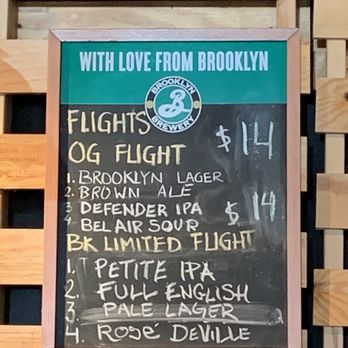 WITH LOVE FROM BROOKLYN
BROOKLYN
B
BREWERY
FLIGHTS
OG FLIGHT $14
1. BROOKLYN LAGER
2. BROWN ALE
3 DEFENDER IPA
4. BEL AIR SOUR $14
BK LIMITED FLIGHT
1. PETITE IPA
2. FULL ENGLISH
3. PALE LAGER
4. ROSÉ DEVILLE